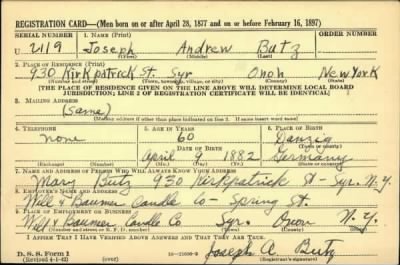 REGISTRATION CARD—(Men born on or after April 28, 1877 and on or before February 16, 1897)
SERIAL NUMBER 1. NAME (Print) ORDER NUMBER
U 2119 Joseph Andrew Butz
(First) (Middle) (Last)
2. PLACE OF RESIDENCE (Print)
930 Kirkpatrick St. Syr Onon New York
(Number and street) (Town, township, village, or city) (County) (State)
[THE PLACE OF RESIDENCE GIVEN ON THE LINE ABOVE WILL DETERMINE LOCAL BOARD
JURISDICTION; LINE 2 OF REGISTRATION CERTIFICATE WILL BE IDENTICAL]
3. MAILING ADDRESS
(Same)
[Mailing address if other than place indicated on line 2. If same insert word same]
4. TELEPHONE 5. AGE IN YEARS 6. PLACE OF BIRTH
none 60 Danzig
DATE OF BIRTH (Town or county)
April 9 1882 Germany
(Exchange) (Number) (Mo.) (Day) (Yr.) (State or country)
7. NAME AND ADDRESS OF PERSON WHO WILL ALWAYS KNOW YOUR ADDRESS
Mary Butz 930 Kirkpatrick St - Syr. N.Y.
8. EMPLOYER'S NAME AND ADDRESS
Will & Baumer Candle Co - Spring St.
9. PLACE OF EMPLOYMENT OR BUSINESS
Will & Baumer Candle Co Syr. Onon N.Y.
(Number and street or R. F. D. number) (Town) (County) (State)
I AFFIRM THAT I HAVE VERIFIED ABOVE ANSWERS AND THAT THEY ARE TRUE.
D. S. S. Form 1
(Revised 4-1-42) (over) 16—21630-2 Joseph A. Butz
(Registrant's signature)